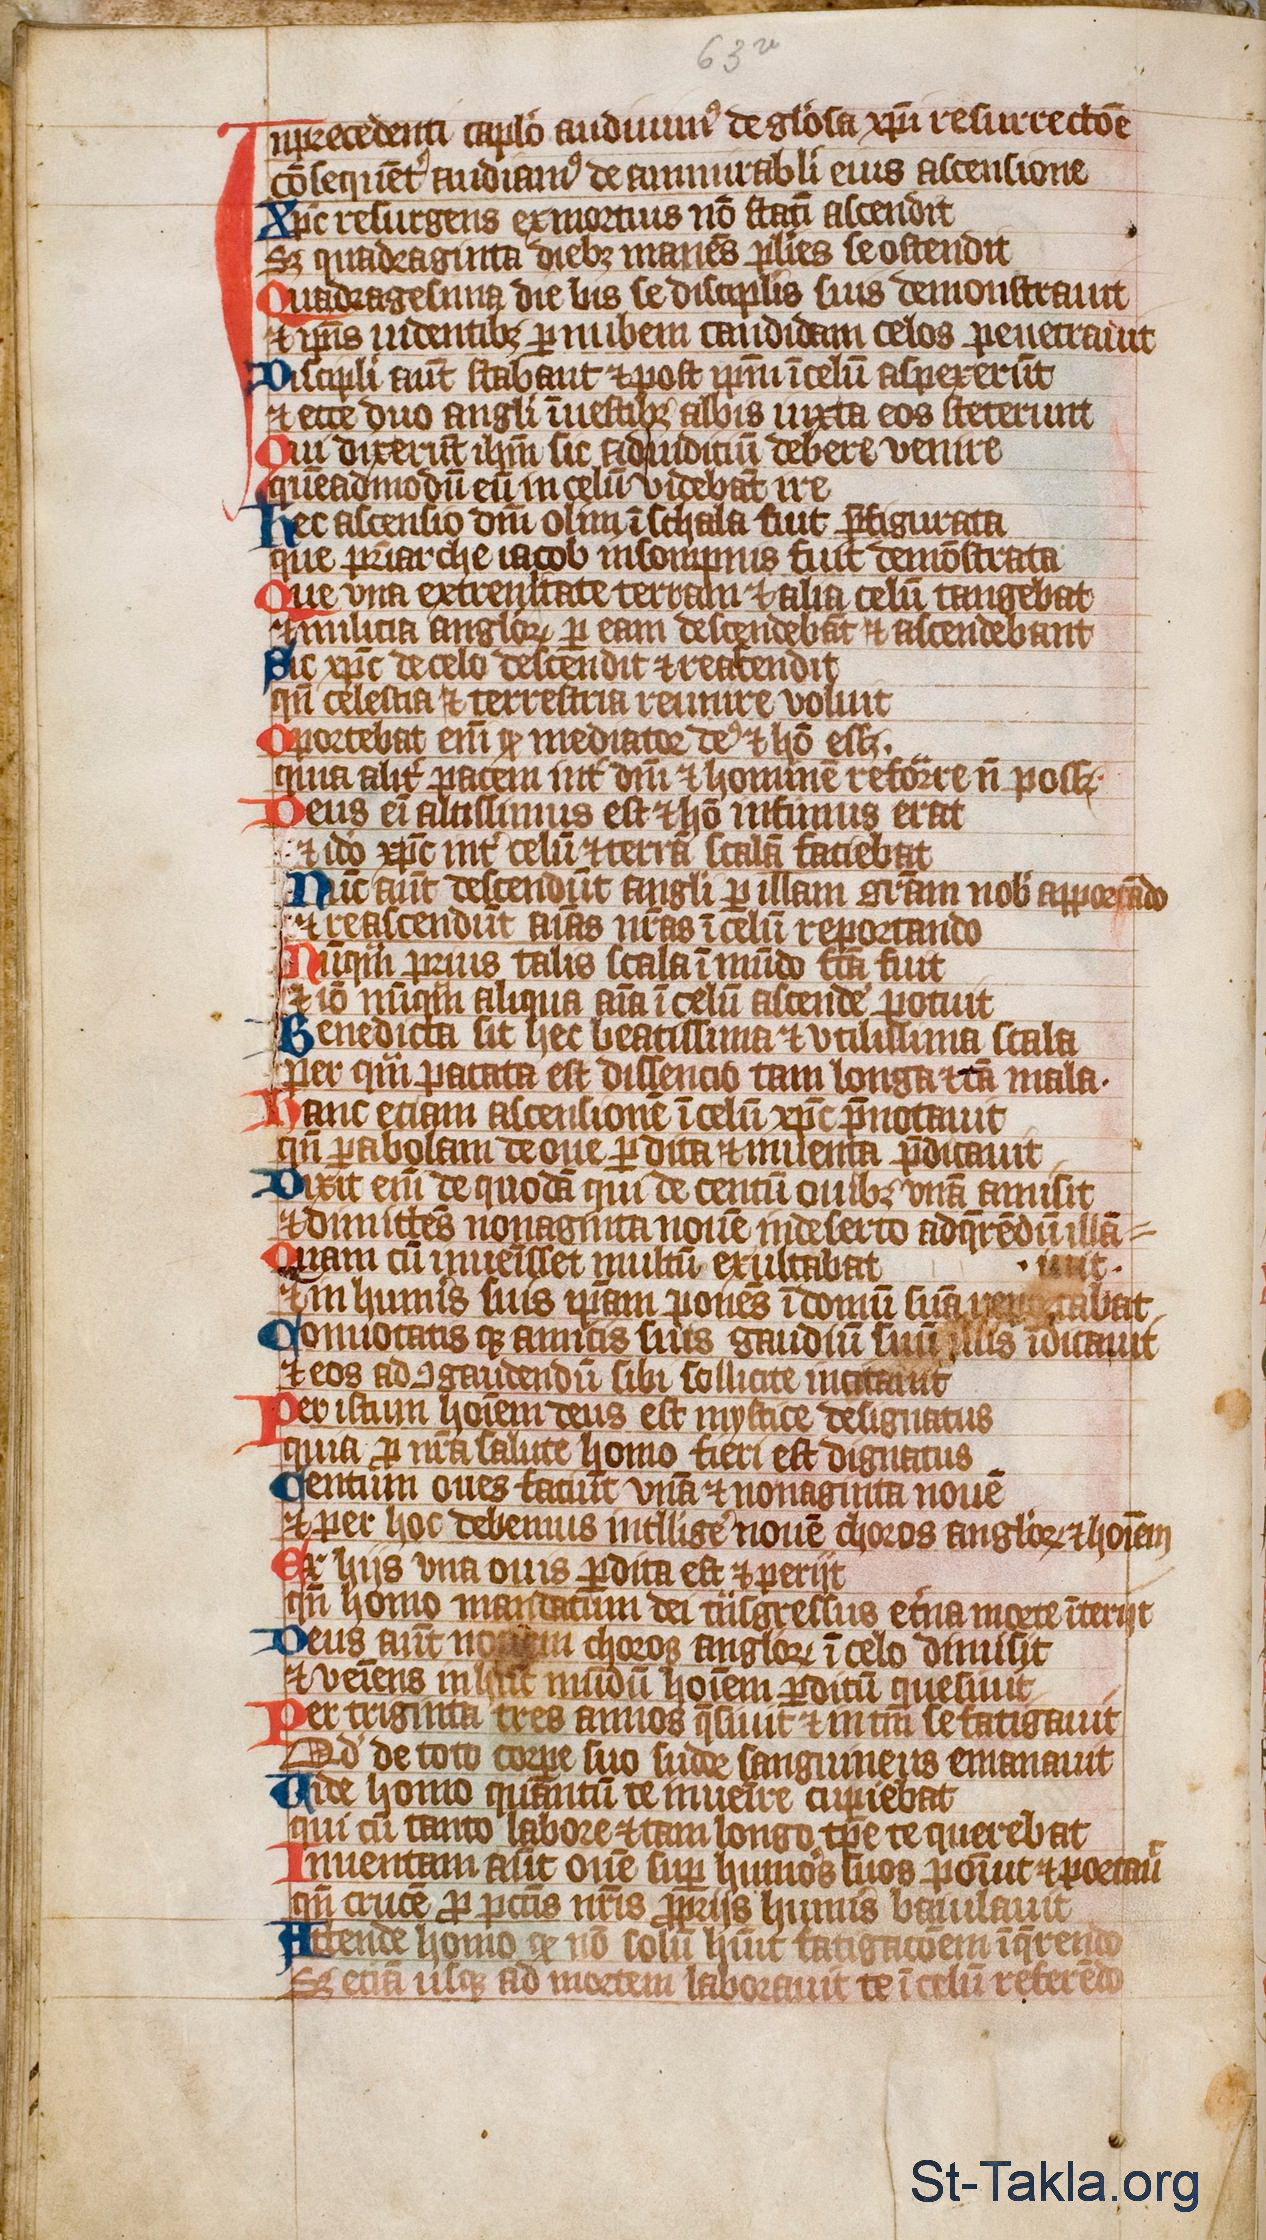 63v
In precedenti caplo audiuimꝰ de gl'osa xp̄i resurrectōe
cōsequēt' audiamꝰ de ammirabli eius ascensione
Xp̄c resurgens ex mortuis nō statī ascendit
Sꝫ quadraginta diebꝫ manēs pl'ies se ostendit
Quadragesima die bis se discip̄lis suis demonstrauit
⁊ ip̄is uidentibꝫ ꝑ nubem candidam celos penetrauit
Discip̄li aūt stabant ⁊ post ip̄m ī celū aspexerūt
⁊ ecce duo angli ī uestibꝫ albis iuxta eos steterunt
Qui dixerūt ih̄m sic ad iudiciū debere venire
quēadmodū eū in celū videbāt ire
Hec ascensio dn̄i olim ī schala fuit p̄figurata
que pr̄iarche iacob in sompnis fuit demōstrata
Que vna extremitate terram ⁊ alia celū tangebat
⁊ militia anglōꝝ ꝑ eam descendebāt ⁊ ascendebant
Sic xp̄c de celo descendit ⁊ reascendit
qn̄ celestia ⁊ terrestria reunire voluit
Oportebat eni ꝙ mediator deꝰ ⁊ hō essꝫ.
quia alit' pacem int' dm̄ ⁊ hominē reform̄re n̄ possꝫ.
Deus ei altissimus est ⁊ hō infimus erat
⁊ ido xp̄c int' celū ⁊ terrā scalā faciebat
Nūc aūt descendūt angli ꝑ illam grām nob' apportādo
⁊ reascendūt aīas nr̄as ī celū reportando
Nūqm̄ prius talis scala ī mūdo fc̄a fuit
⁊ iō nūqm̄ aliqua aīa ī celū ascende' potuit
Benedicta sit hec beatissima ⁊ vtilissima scala
per qm̄ pacata est dissencio tam longa ⁊ tā mala.
Hanc etiam ascensionē ī celū xp̄c p̄notauit
qn̄ ꝑabolam de oue ꝑdita ⁊ inuenta p̄dicauit
Dixit eni de quodā qui de centū ouibꝫ vnā amisit
⁊ dimittēs nonaginta nouē in deserto ad q̄rēdū illā =
Quam cū inueīsset multū exultabat . iuit .
⁊ in humīs suis ip̄am ponēs ī domū suā reportabat
Conuocatis qꝫ amicis suis gaudiū suū illis īdicauit
⁊ eos ad ꝯgaudendū sibi sollicite incitauit
Per istum hoīem deus est mystice designatus
quia ꝓ nr̄a salute homo fieri est dignatus
Centum oues faciūt vnā ⁊ nonaginta nouē
⁊ per hoc debemus intllige' nouē choros anglōꝝ ⁊ hoīem
Ex hiis vna ouis ꝑdita est ⁊ periit
qn̄ homo mandatum dei tn̄sgressus et'na morte īteriit
Deus aūt nouem choros anglōꝝ ī celo dimisit
⁊ veīens in hūc mūdū hoīem ꝑditū quesiuit
Per triginta tres annos q̄siuit ⁊ in tm̄ se fatigauit
Qd' de toto corpe suo sudor sanguineus emanauit
Vide homo quantū te inueīre cupiebat
qui cū tanto labore ⁊ tam longo tp̄e te querebat
Inuentam asit ouē sup̄ humōs suos posuit ⁊ portauit
qn̄ crucē ꝓ pctīs nr̄is ꝓpriis humīs baiulauit
Attende homo ꝙ nō solū hūit fatigacōem ī q̄rendo
Sꝫ etiā usqꝫ ad mortem laborauit te ī celū referēdo
St-Takla.org